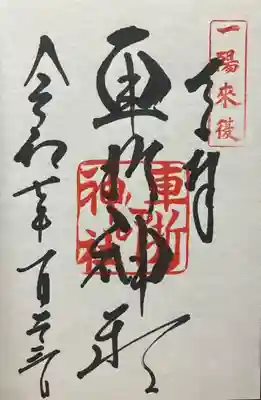 一陽來復
奉拝
車折神社
車折
神社
令和七年一月二十三日